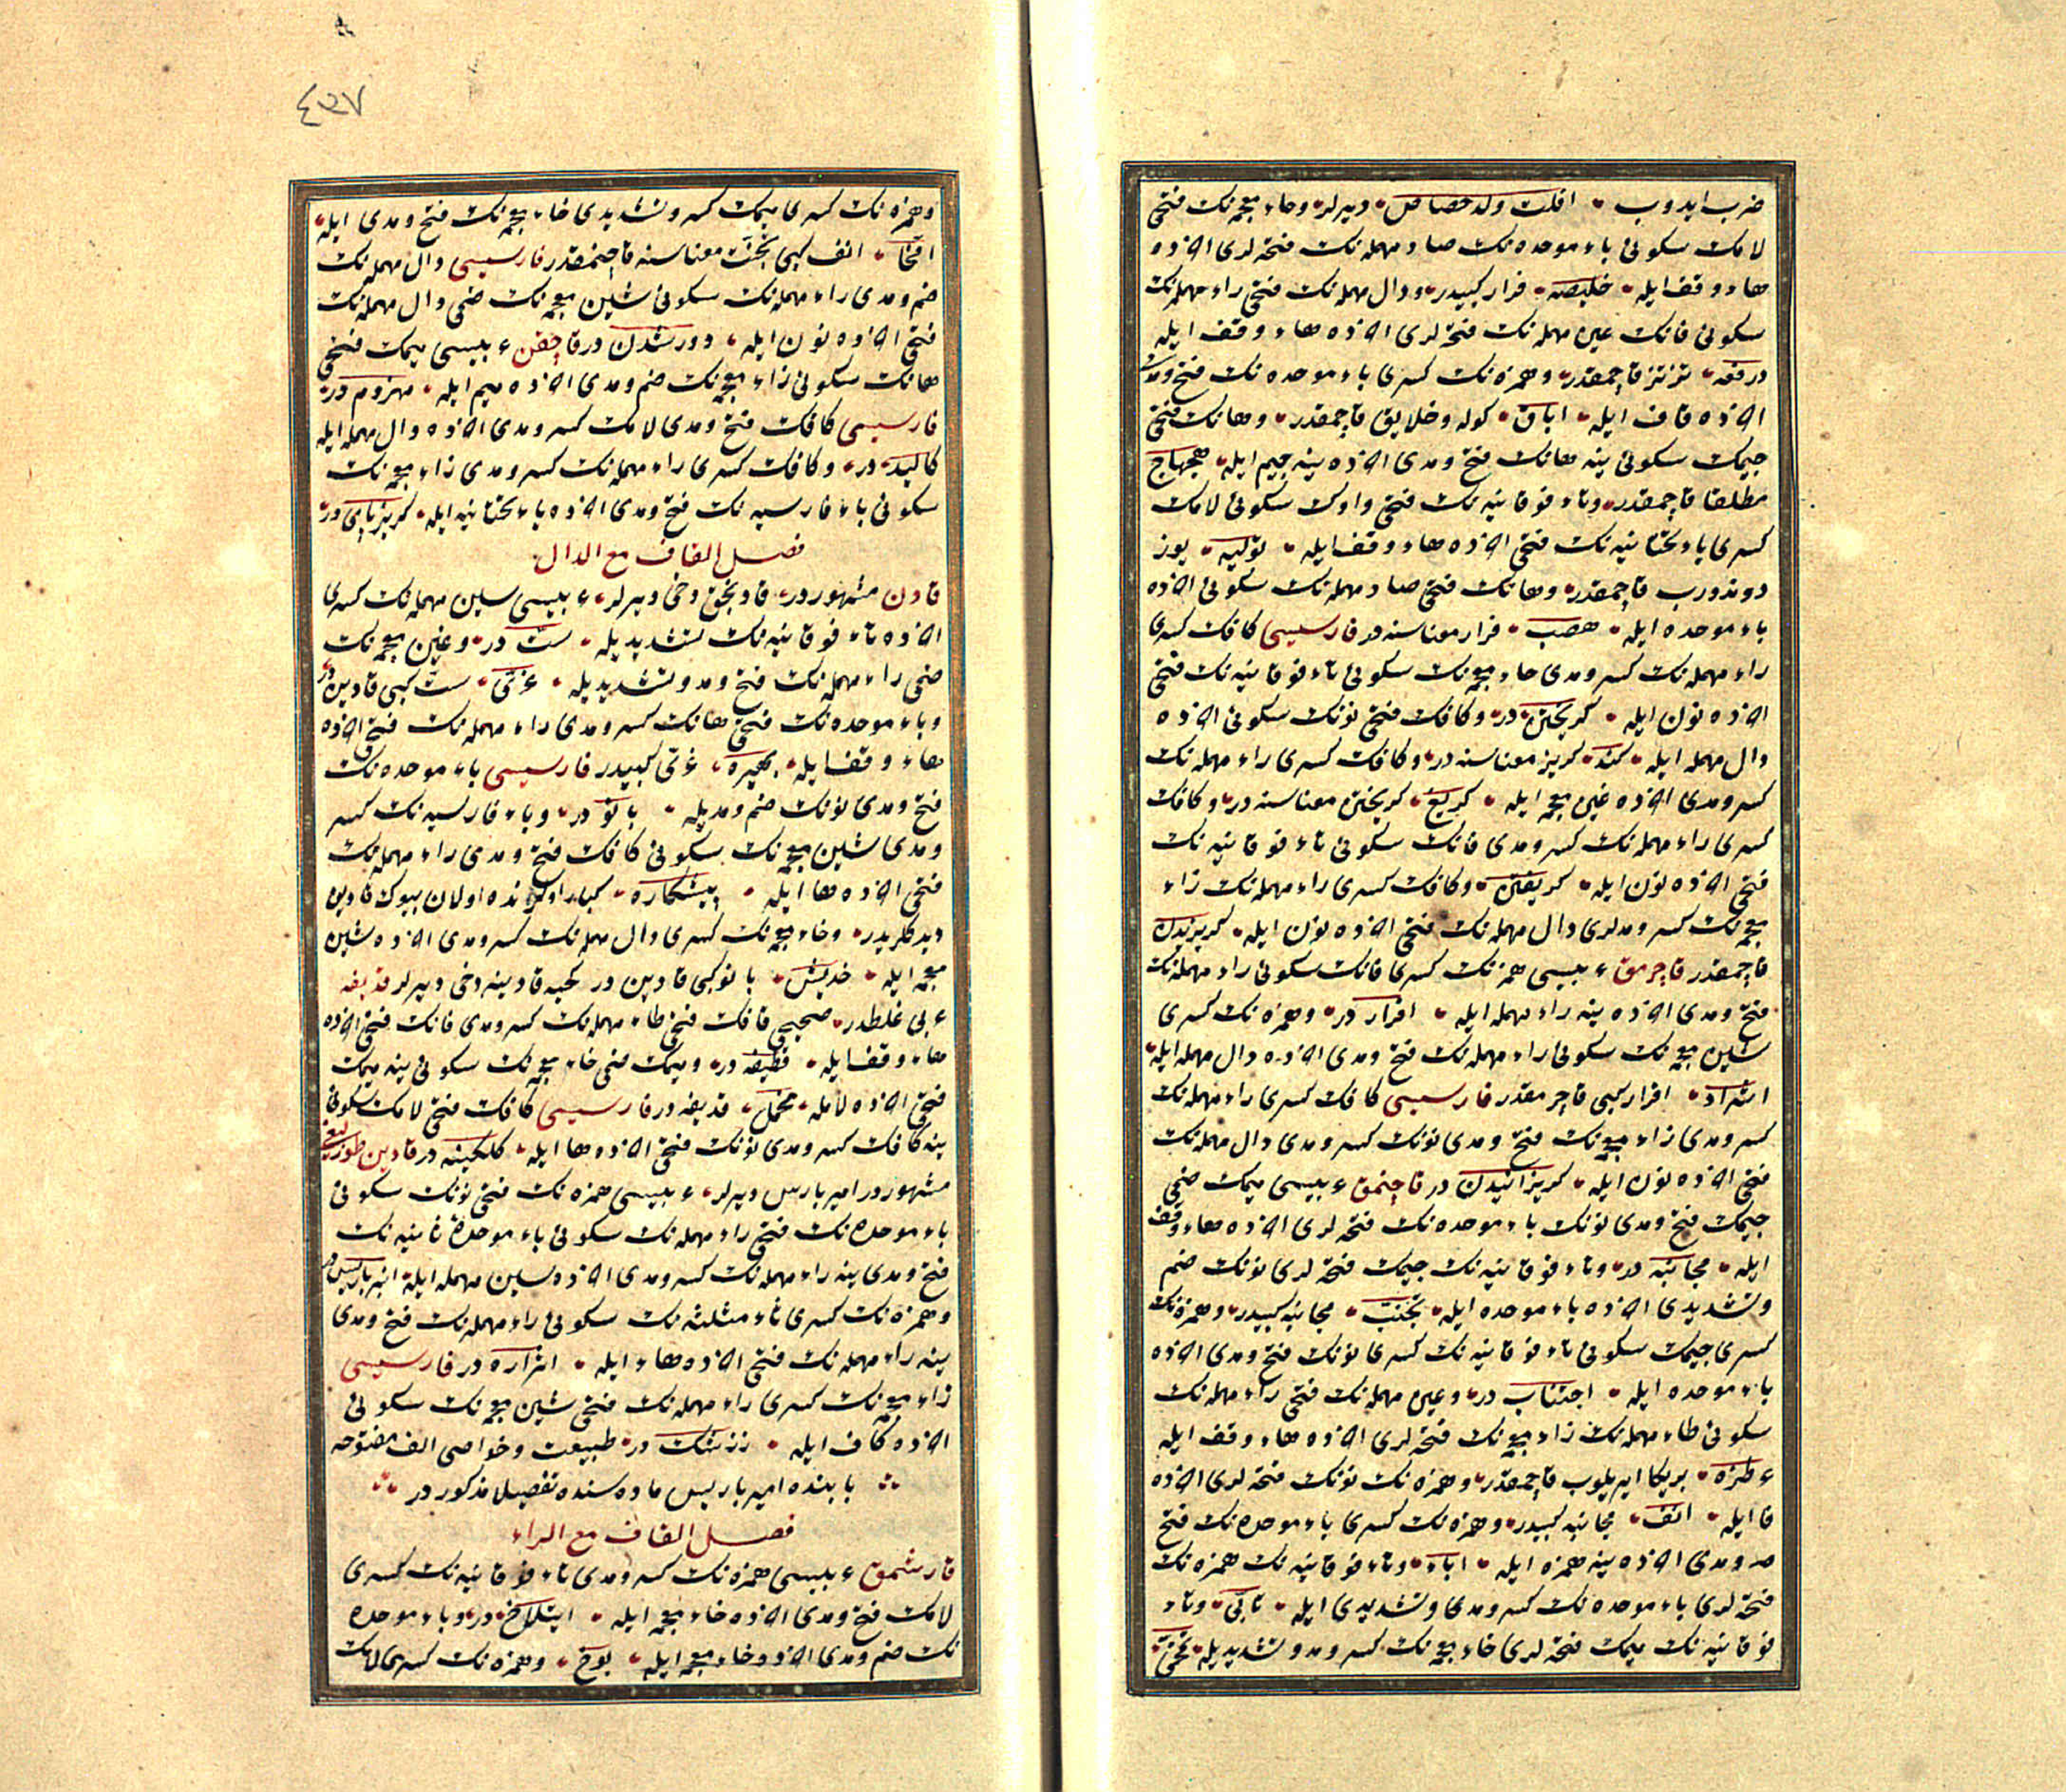 ضرب ایدوب افلت وله حصاص دیرلر وخاء معجمه‌نك فتحی
لامك سكونی باء موحده‌نك صاد مهمله‌نك فتحه‌لری اخرنده
هاء وقف ایله خلبصه فرار كبیدر ودال مهمله‌نك فتحی راء مهمله‌نك
سكونی فانك عین مهمله‌نك فتحه‌لری اخرنده هاء وقف ایله
درفعه تزتز قاچمقدر وهمزه‌نك كسری باء موحده‌نك فتح ومدی
اخرنده قاف ایله اباق كوله وخلایق قاچمقدر وهانك فتحی
جیمك سكونی ینه هانك فتح ومدی اخرنده ینه جیم ایله هجهاج
مطلقا قاچمقدر وتاء فوقانیه‌نك فتحی واوك سكونی لامك
كسری یاء تحتانیه‌نك فتحی اخرنده هاء وقف ایله تولیه یوز
دوندورب قاچمقدر وهانك فتحی صاد مهمله‌نك سكونی اخرنده
باء موحده ایله هصب فرار معناسنه در فارسیسی كافك كسری
راء مهمله‌نك كسر ومدی خاء معجمه‌نك سكونی تاء فوقانیه‌نك فتحی
اخرنده نون ایله كریختن در وكافك فتحی نونك سكونی اخرنده
دال مهمله ایله كند كریز معناسنه در وكافك كسری راء مهمله‌نك
كسر ومدی اخرنده غین معجمه ایله كریغ كریختن معناسنه در وكافك
كسری راء مهمله‌نك كسر ومدی فانك سكونی تاء فوقانیه‌نك
فتحی اخرنده نون ایله كریفتن وكافك كسری راء مهمله‌نك زاء
معجمه‌نك كسر ومدلری دال مهمله‌نك فتحی اخرنده نون ایله كریزیدن
قاچمقدر قاچرمق ء بیسی همزه‌نك كسری فانك سكونی راء مهمله‌نك
فتح ومدی اخرنده ینه راء مهمله ایله افرار در وهمزه‌نك كسری
شین معجمه‌نك سكونی راء مهمله‌نك فتح ومدی اخرنده دال مهمله ایله
اشراد افرار كبی قاچرمقدر فارسیسی كافك كسری راء مهمله‌نك
كسر ومدی زاء معجمه‌نك فتح ومدی نونك كسر ومدی دال مهمله‌نك
فتحی اخرنده نون ایله كریزانیدن در قاچنمق ء بیسی میمك ضمی
جیمك فتح ومدی نونك باء موحده‌نك فتحه‌لری اخرنده هاء وقف
ایله مجانبه در وتاء فوقانیه‌نك جیمك فتحه‌لری نونك ضم
وتشدیدی اخرنده باء موحده ایله تجنب مجانبه كبیدر وهمزه‌نك
كسری جیمك سكونی تاء فوقانیه‌نك كسری نونك فتح ومدی اخرنده
باء موحده ایله اجتناب در وعین مهمله‌نك فتحی راء مهمله‌نك
سكونی طاء مهمله‌نك زاء معجمه‌نك فتحه‌لری اخرنده هاء وقف ایله
عرطزه بریكا ایریلوب قاچمقدر وهمزه‌نك نونك فتحه‌لری اخرنده
فا ایله انف مجانبه كبیدر وهمزه‌نك كسری باء موحده‌نك فتح
ومدی اخرنده ینه همزه ایله اباء وتاء فوقانیه‌نك همزه‌نك
فتحه‌لری باء موحده‌نك كسر ومدی وتشدیدی ایله تأبی وتاء
فوقانیه‌نك میمك فتحه‌لری خاء معجمه‌نك كسر ومد وتشدیدیله تمخی
٤٣٧
وهمزه‌نك كسری میمك كسر وتشدیدی خاء معجمه‌نك فتح ومدی ایله
امخا انف كبی تجنب معناسنه قاچنمقدر فارسیسی دال مهمله‌نك
ضم ومدی راء مهمله‌نك سكونی شین معجمه‌نك ضمی دال مهمله‌نك
فتحی اخرنده نون ایله دورشدن در قاچقن ء بیسی میمك فتحی
هانك سكونی زاء معجمه‌نك ضم ومدی اخرنده میم ایله مهزوم در
فارسیسی كافك فتح ومدی لامك كسر ومدی اخرنده دال مهمله ایله
كالید در وكافك كسری راء مهمله‌نك كسر ومدی زاء معجمه‌نك
سكونی باء فارسیه‌نك فتح ومدی اخرنده یاء تحتانیه ایله كریزپای در
فصل القاف مع الدال
قادن مشهور در قادنجق دخی دیرلر ء بیسی سین مهمله‌نك كسری
اخرنده تاء فوقانیه‌نك تشدیدیله ست در وغین معجمه‌نك
ضمی راء مهمله‌نك فتح ومد وتشدیدیله غری ست كبی قادین در
وباء موحده‌نك فتحی هانك كسر ومدی راء مهمله‌نك فتحی اخرنده
هاء وقف ایله بهیره غری كبیدر فارسیسی باء موحده‌نك
فتح ومدی نونك ضم ومدیله بانو در وباء فارسیه‌نك كسر
ومدی شین معجمه‌نك سكونی كافك فتح ومدی راء مهمله‌نك
فتحی اخرنده ها ایله پیشكاره كبار اولرنده اولان بیوك قادین
دیدكلریدر وخاء معجمه‌نك كسری دال مهمله‌نك كسر ومدی اخرنده شین
معجمه ایله خدیش بانو كبی قادین در كحیه قادینه دخی دیرلر قدیفه
عربی غلطدر صحیحی قافك فتحی طاء مهمله‌نك كسر ومدی فانك فتحی اخرنده
هاء وقف ایله قطیفه در ومیمك ضمی خاء معجمه‌نك سكونی ینه میمك
فتحی اخرنده لامله مخمل قدیفه در فارسیسی كافك فتحی لامك سكونی
ینه كافك كسر ومدی نونك فتحی اخرنده ها ایله كلكینه در قادین طوزلیغی
مشهور در امیر باریس دیرلر ء بیسی همزه‌نك فتحی نونك سكونی
باء موحده‌نك فتحی راء مهمله‌نك سكونی باء موحدهٔ ثانیه‌نك
فتح ومدی ینه راء مهمله‌نك كسر ومدی اخرنده سین مهمله ایله انبرباریس در
وهمزه‌نك كسری ثاء مثلثه‌نك سكونی راء مهمله‌نك فتح ومدی
ینه راء مهمله‌نك فتحی اخرنده هاء ایله اثراره در فارسیسی
زاء معجمه‌نك كسری راء مهمله‌نك فتحی شین معجمه‌نك سكونی
اخرنده كاف ایله زرشك در طبیعت وخواصی الف مفتوحه
بابنده امیر باریس ماده سنده تفصیلا مذكور در
فصل القاف مع الراء
قارشمق ء بیسی همزه‌نك كسر ومدی تاء فوقانیه‌نك كسری
لامك فتح ومدی اخرنده خاء معجمه ایله ایتلاخ در وباء موحده
نك ضم ومدی اخرنده خاء معجمه ایله بوخ وهمزه‌نك كسری لامك